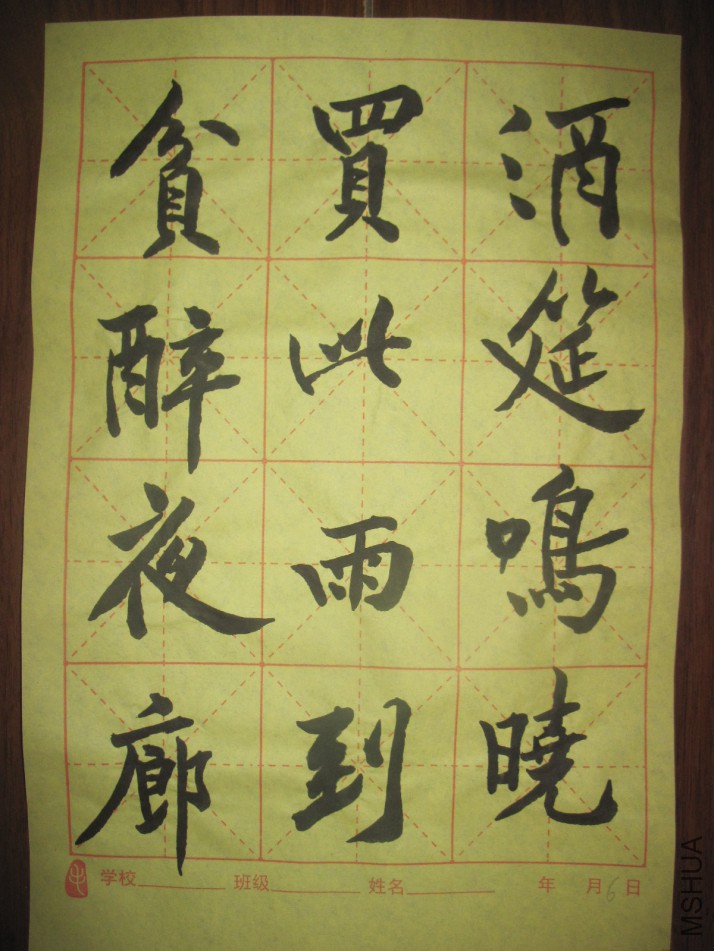 酒筵鳴曉
買此雨到
貧醉夜廊
学校 班级 姓名 年 月6日
MSHUA